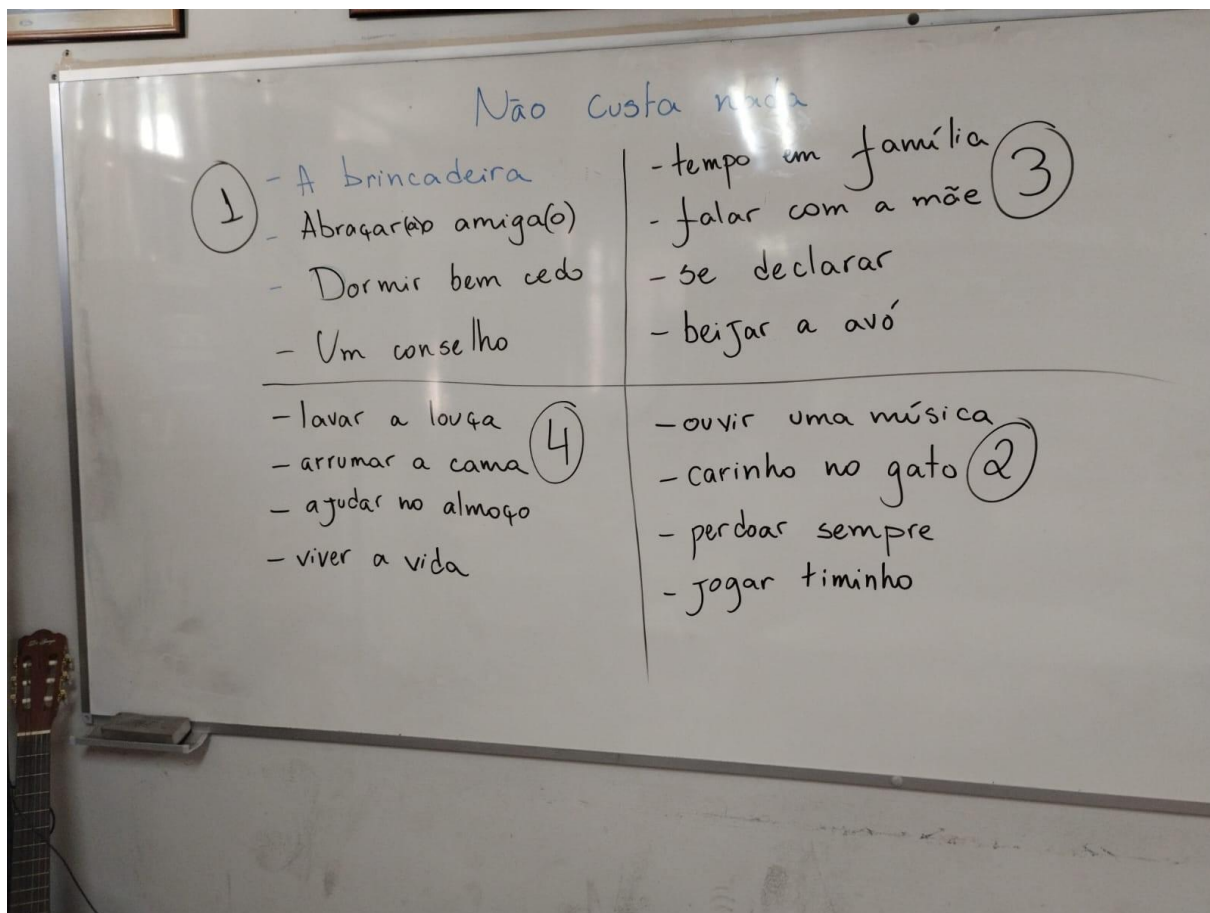 Não custa nada
1
- A brincadeira
- Abraçar(ao) amiga(o)
- Dormir bem cedo
- Um conselho
3
- tempo em família
- falar com a mãe
- se declarar
- beijar a avó
4
- lavar a louça
- arrumar a cama
- ajudar no almoço
- viver a vida
2
- ouvir uma música
- carinho no gato
- perdoar sempre
- jogar timinho